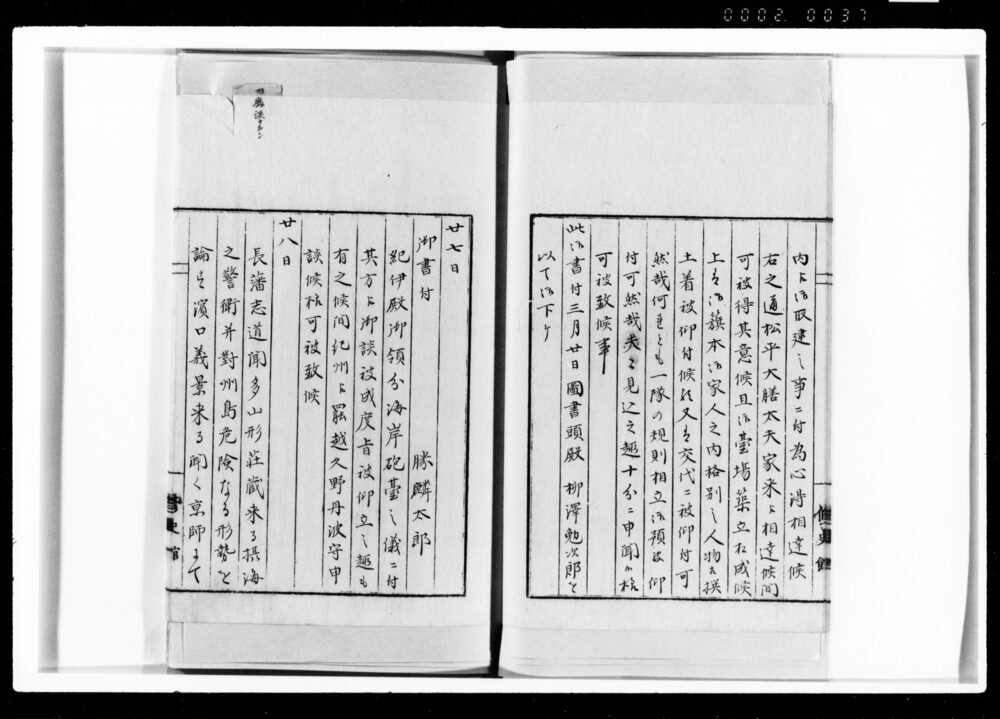 0002.0037
内ゟ御取建之事ニ付為心得相達候
右之通松平大膳太夫家来ゟ相達候間
可被得其意候且御臺場築立相成候
上は御籏本御家人之内格別之人物御撰
土着被仰付候歟又は交代ニ被仰付可
然哉何れとも一隊の規則相立御預被仰
付可然哉夫々見込之趣十分ニ申聞候様
可被致候事
此御書付三月廿日圖書頭殿柳澤勉次郎を
以て御下ケ
修史館
廿七日
御書付
勝麟太郎
紀伊殿御領分海岸砲臺之儀ニ付
其方ゟ御談被成度旨被仰立之趣も
有之候間紀州ゟ罷越久野丹波守申
談候様可被致候
廿八日
長藩志道聞多山形荘蔵来る摂海
之警衛并對州島危険なる形勢を
論す濱口義景来る聞く京師にて
修史館